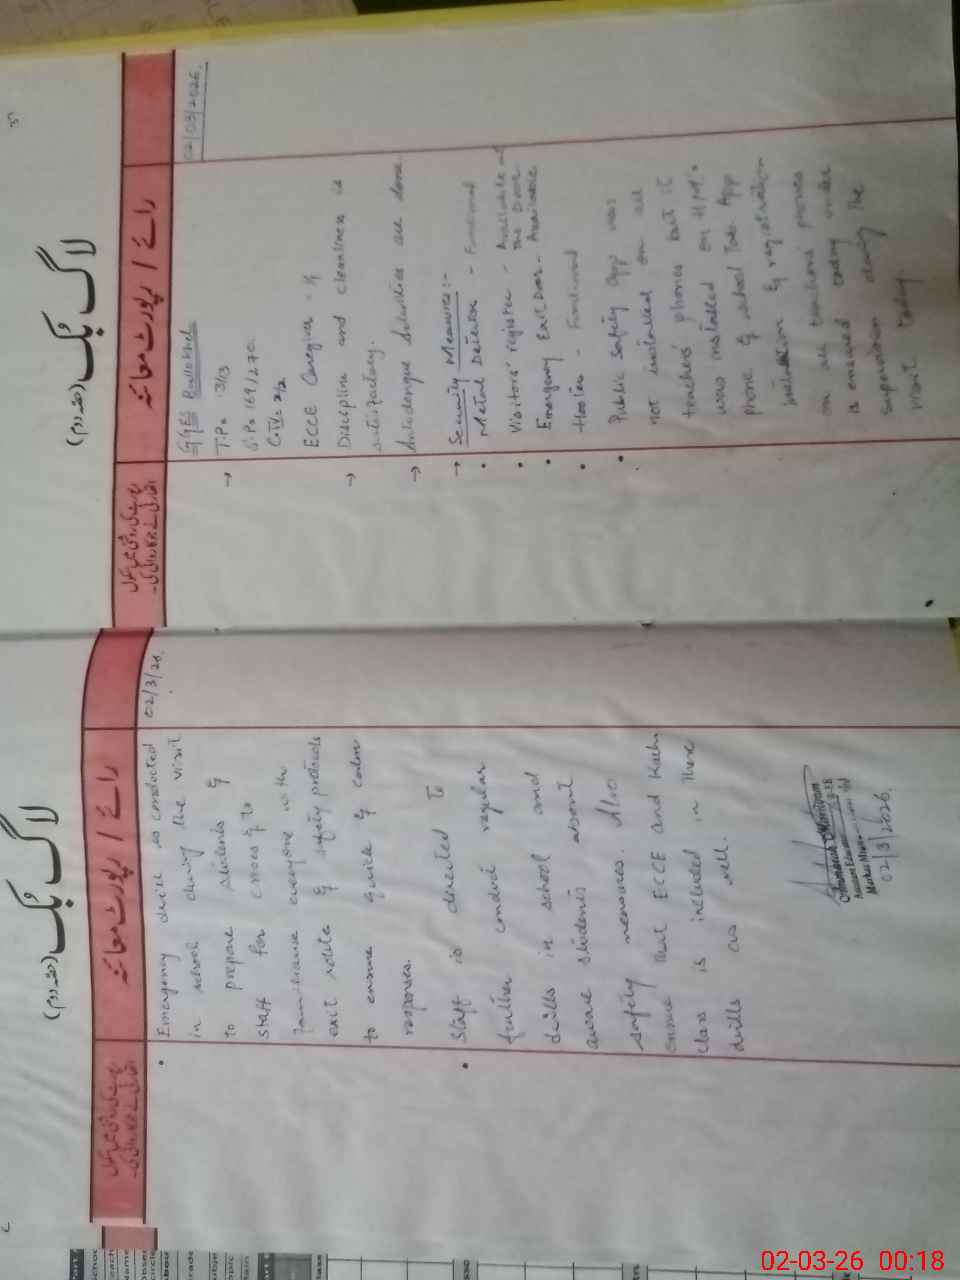 لاگ بک (حصہ دوم)
رائے / رپورٹ معائنہ
02/03/2026.
GGES
→ T.P= 3/3
S.P= 169/270.
C.IV= 2/2
ECCE Caregiver = 1
→ Discipline and cleanliness is
satisfactory.
→ Antidengue activities are done.
→ Security Measures:-
• Metal Detector - Functional
• Visitors' register - Available at
the Door
• Emergency Exit Door - Available
• Hooter - Functional
• Public Safety App was
not installed on all
teachers' phones but it
was installed on HM's
phone & school Tab. App
installation & registration
on all teachers phones
is ensured today under
supervision during the
visit today
لاگ بک (حصہ دوم)
رائے / رپورٹ معائنہ
02/3/26.
• Emergency drill is conducted
in school during the visit
to prepare students &
staff for crises & to
familiarize everyone with
exit route & safety protocols
to ensure quick & calm
responses.
• Staff is directed to
further conduct regular
drills in school and
aware students about
safety measures. Also
ensure that ECCE and Kachi
class is included in these
drills as well.
02/3/2026.
02-03-26 00:18